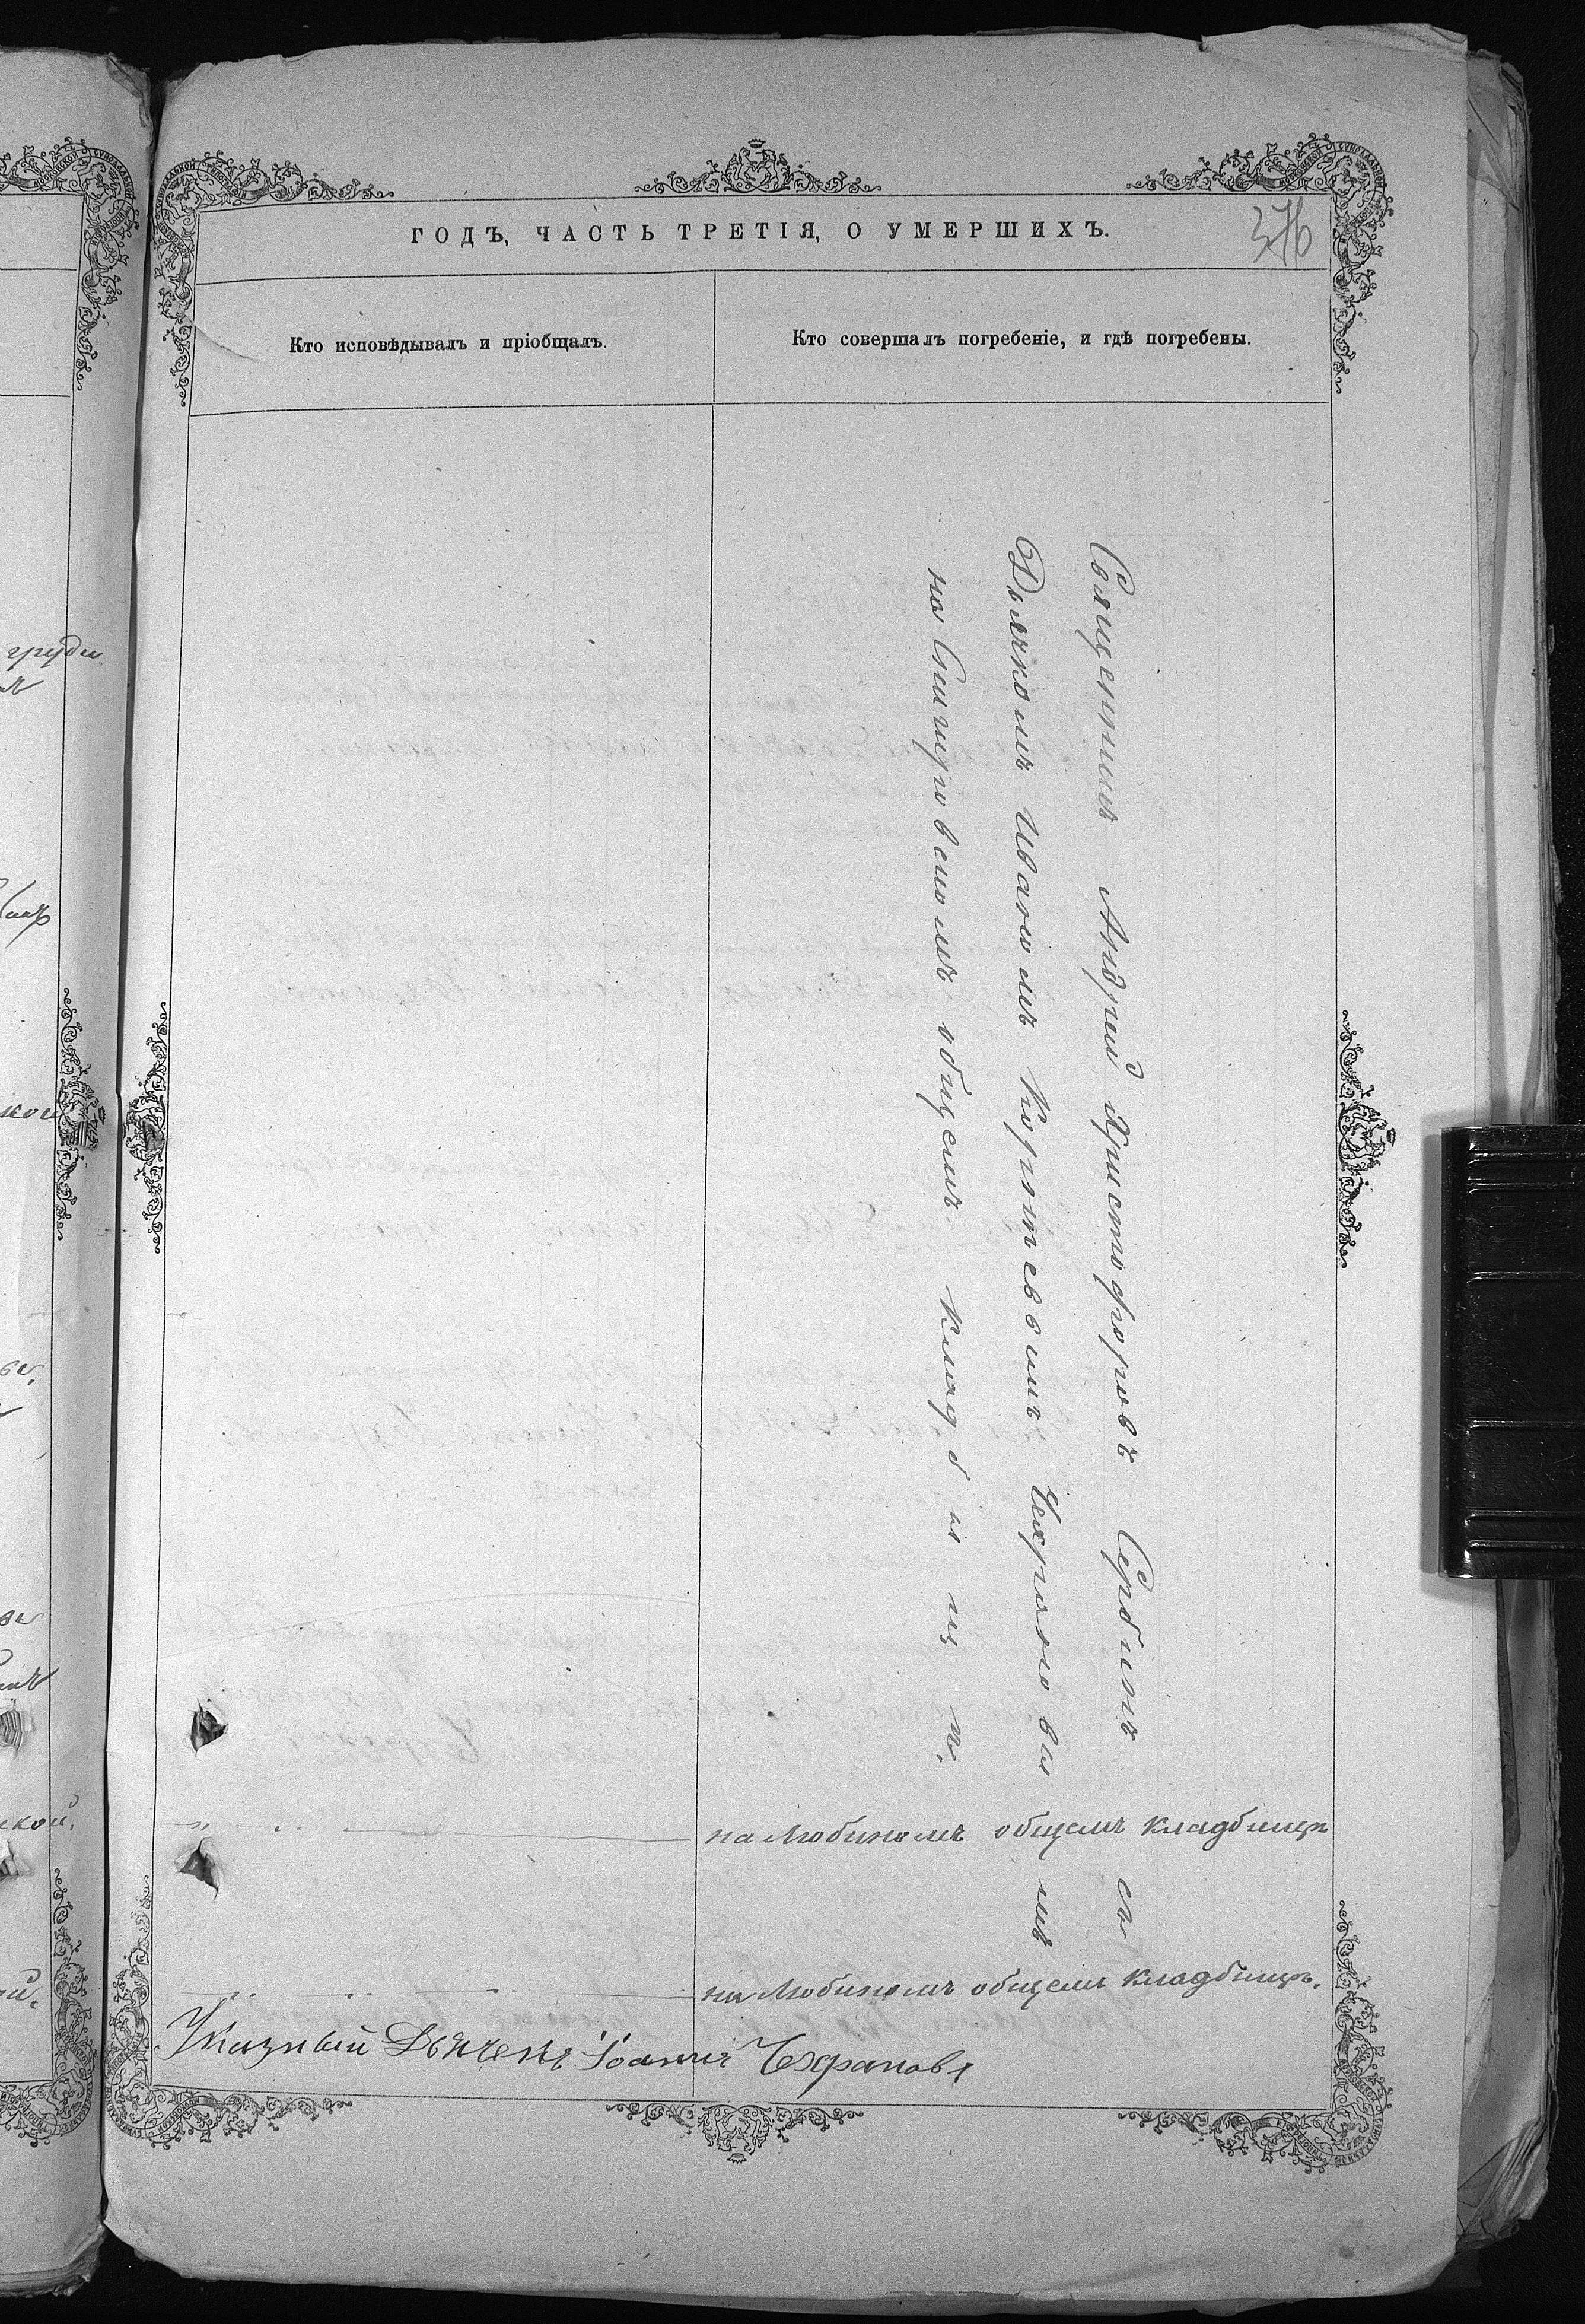 ГОДЪ, ЧАСТЬ ТРЕТІЯ, О УМЕРШИХЪ.
376
Кто исповѣдывалъ и пріобщалъ.
Кто совершалъ погребеніе, и гдѣ погребены.
Священникъ Андрей Христофоровъ Сербинъ съ
Дьячкомъ Иваномъ Корнѣевымъ Чехрановымъ
на общемъ кладбищѣ.
на Любиномъ общемъ кладбищѣ
на Любиномъ общемъ кладбищѣ.
Указный Дьячекъ Іоаннъ Чехрановъ
груди